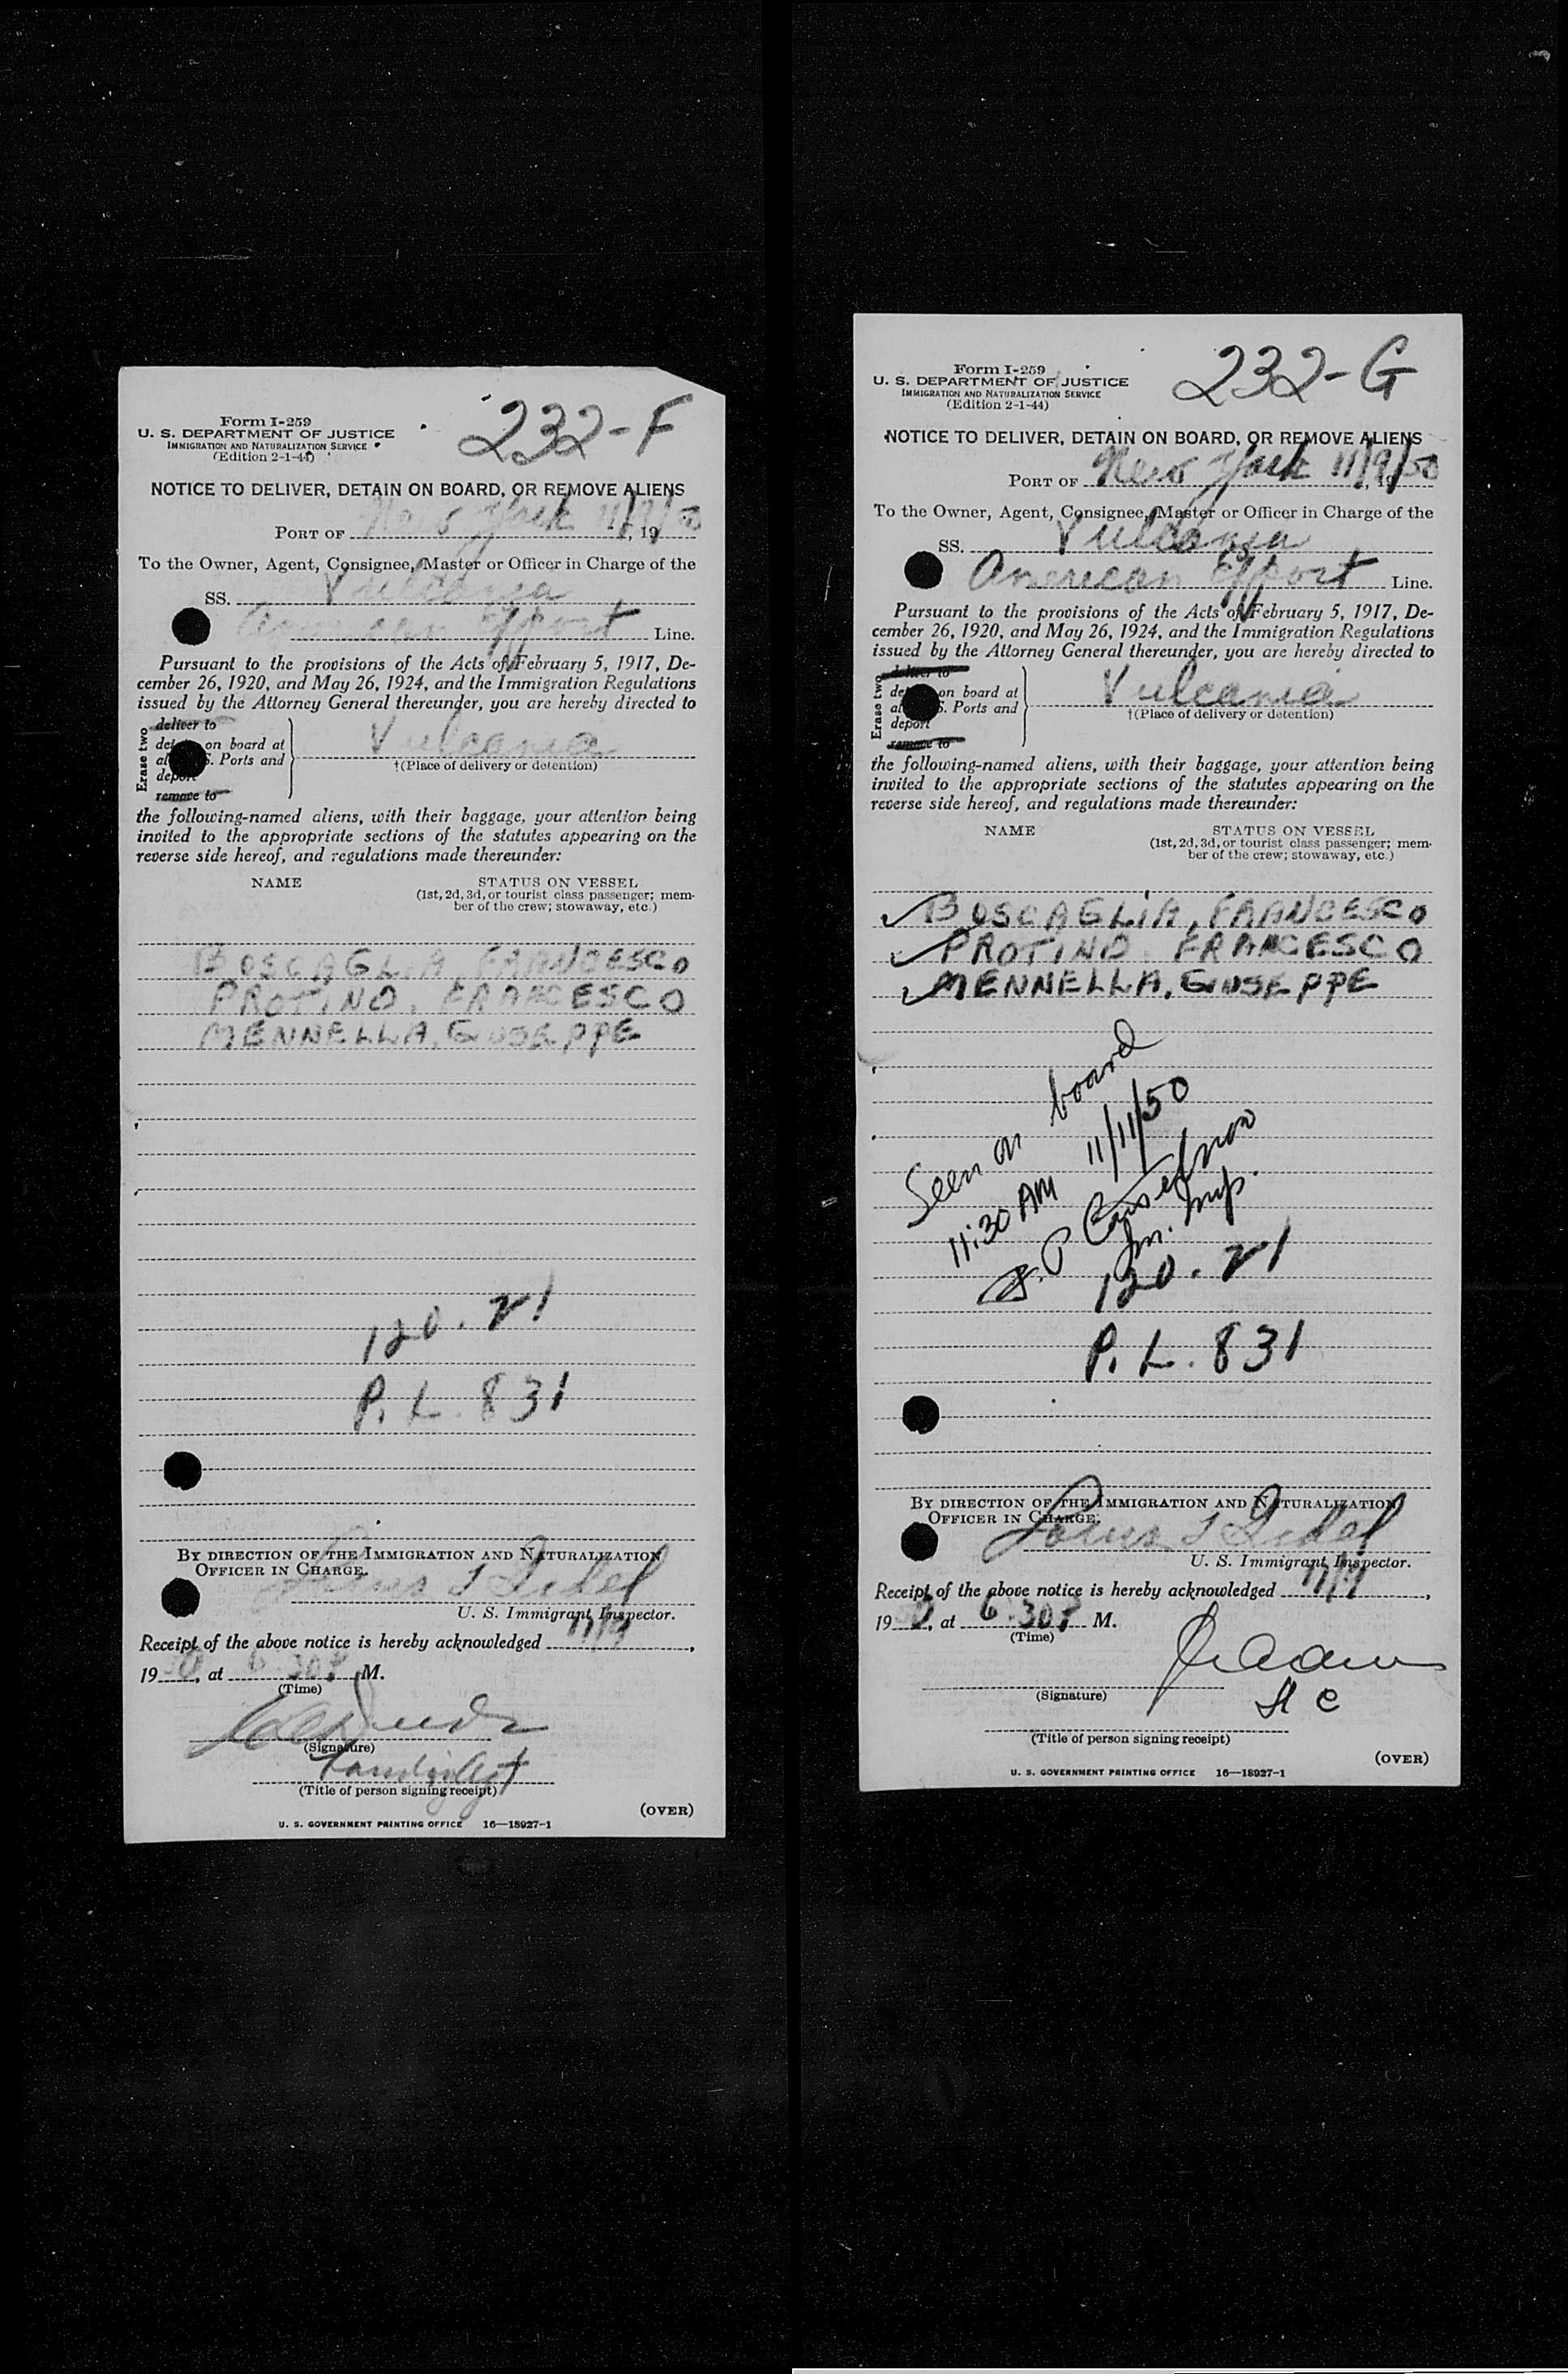 232-F
Form I-259
U. S. DEPARTMENT OF JUSTICE
IMMIGRATION AND NATURALIZATION SERVICE
(Edition 2-1-44)
NOTICE TO DELIVER, DETAIN ON BOARD, OR REMOVE ALIENS
PORT OF New York 11/9/50, 19
To the Owner, Agent, Consignee, Master or Officer in Charge of the
SS. Vulcania
American Export Line.
Pursuant to the provisions of the Acts of February 5, 1917, De-
cember 26, 1920, and May 26, 1924, and the Immigration Regulations
issued by the Attorney General thereunder, you are hereby directed to
Erase two
deliver to
on board at
S. Ports and
deport
remove to
Vulcania
†(Place of delivery or detention)
the following-named aliens, with their baggage, your attention being
invited to the appropriate sections of the statutes appearing on the
reverse side hereof, and regulations made thereunder:
NAME STATUS ON VESSEL
(1st, 2d, 3d, or tourist class passenger; mem-
ber of the crew; stowaway, etc.)
BOSCAGLIA, FRANCESCO
PROTINO, FRANCESCO
MENNELLA, GIUSEPPE
120.21
P.L. 831
BY DIRECTION OF THE IMMIGRATION AND NATURALIZATION
OFFICER IN CHARGE.
U. S. Immigrant Inspector.
Receipt of the above notice is hereby acknowledged 11/9,
1950, at 6:30 P M.
(Time)
(Signature)
(Title of person signing receipt)
(OVER)
U. S. GOVERNMENT PRINTING OFFICE 16—18927-1
232-G
Form I-259
U. S. DEPARTMENT OF JUSTICE
IMMIGRATION AND NATURALIZATION SERVICE
(Edition 2-1-44)
NOTICE TO DELIVER, DETAIN ON BOARD, OR REMOVE ALIENS
PORT OF New York 11/9/50, 19
To the Owner, Agent, Consignee, Master or Officer in Charge of the
SS. Vulcania
American Export Line.
Pursuant to the provisions of the Acts of February 5, 1917, De-
cember 26, 1920, and May 26, 1924, and the Immigration Regulations
issued by the Attorney General thereunder, you are hereby directed to
Erase two
deliver to
on board at
S. Ports and
deport
remove to
Vulcania
†(Place of delivery or detention)
the following-named aliens, with their baggage, your attention being
invited to the appropriate sections of the statutes appearing on the
reverse side hereof, and regulations made thereunder:
NAME STATUS ON VESSEL
(1st, 2d, 3d, or tourist class passenger; mem-
ber of the crew; stowaway, etc.)
BOSCAGLIA, FRANCESCO
PROTINO, FRANCESCO
MENNELLA, GIUSEPPE
Seen on board
11:30 AM 11/11/50
Im. Insp.
120.21
P.L. 831
BY DIRECTION OF THE IMMIGRATION AND NATURALIZATION
OFFICER IN CHARGE.
U. S. Immigrant Inspector.
Receipt of the above notice is hereby acknowledged 11/9,
1950, at 6:30 P M.
(Time)
(Signature)
(Title of person signing receipt)
(OVER)
U. S. GOVERNMENT PRINTING OFFICE 16—18927-1